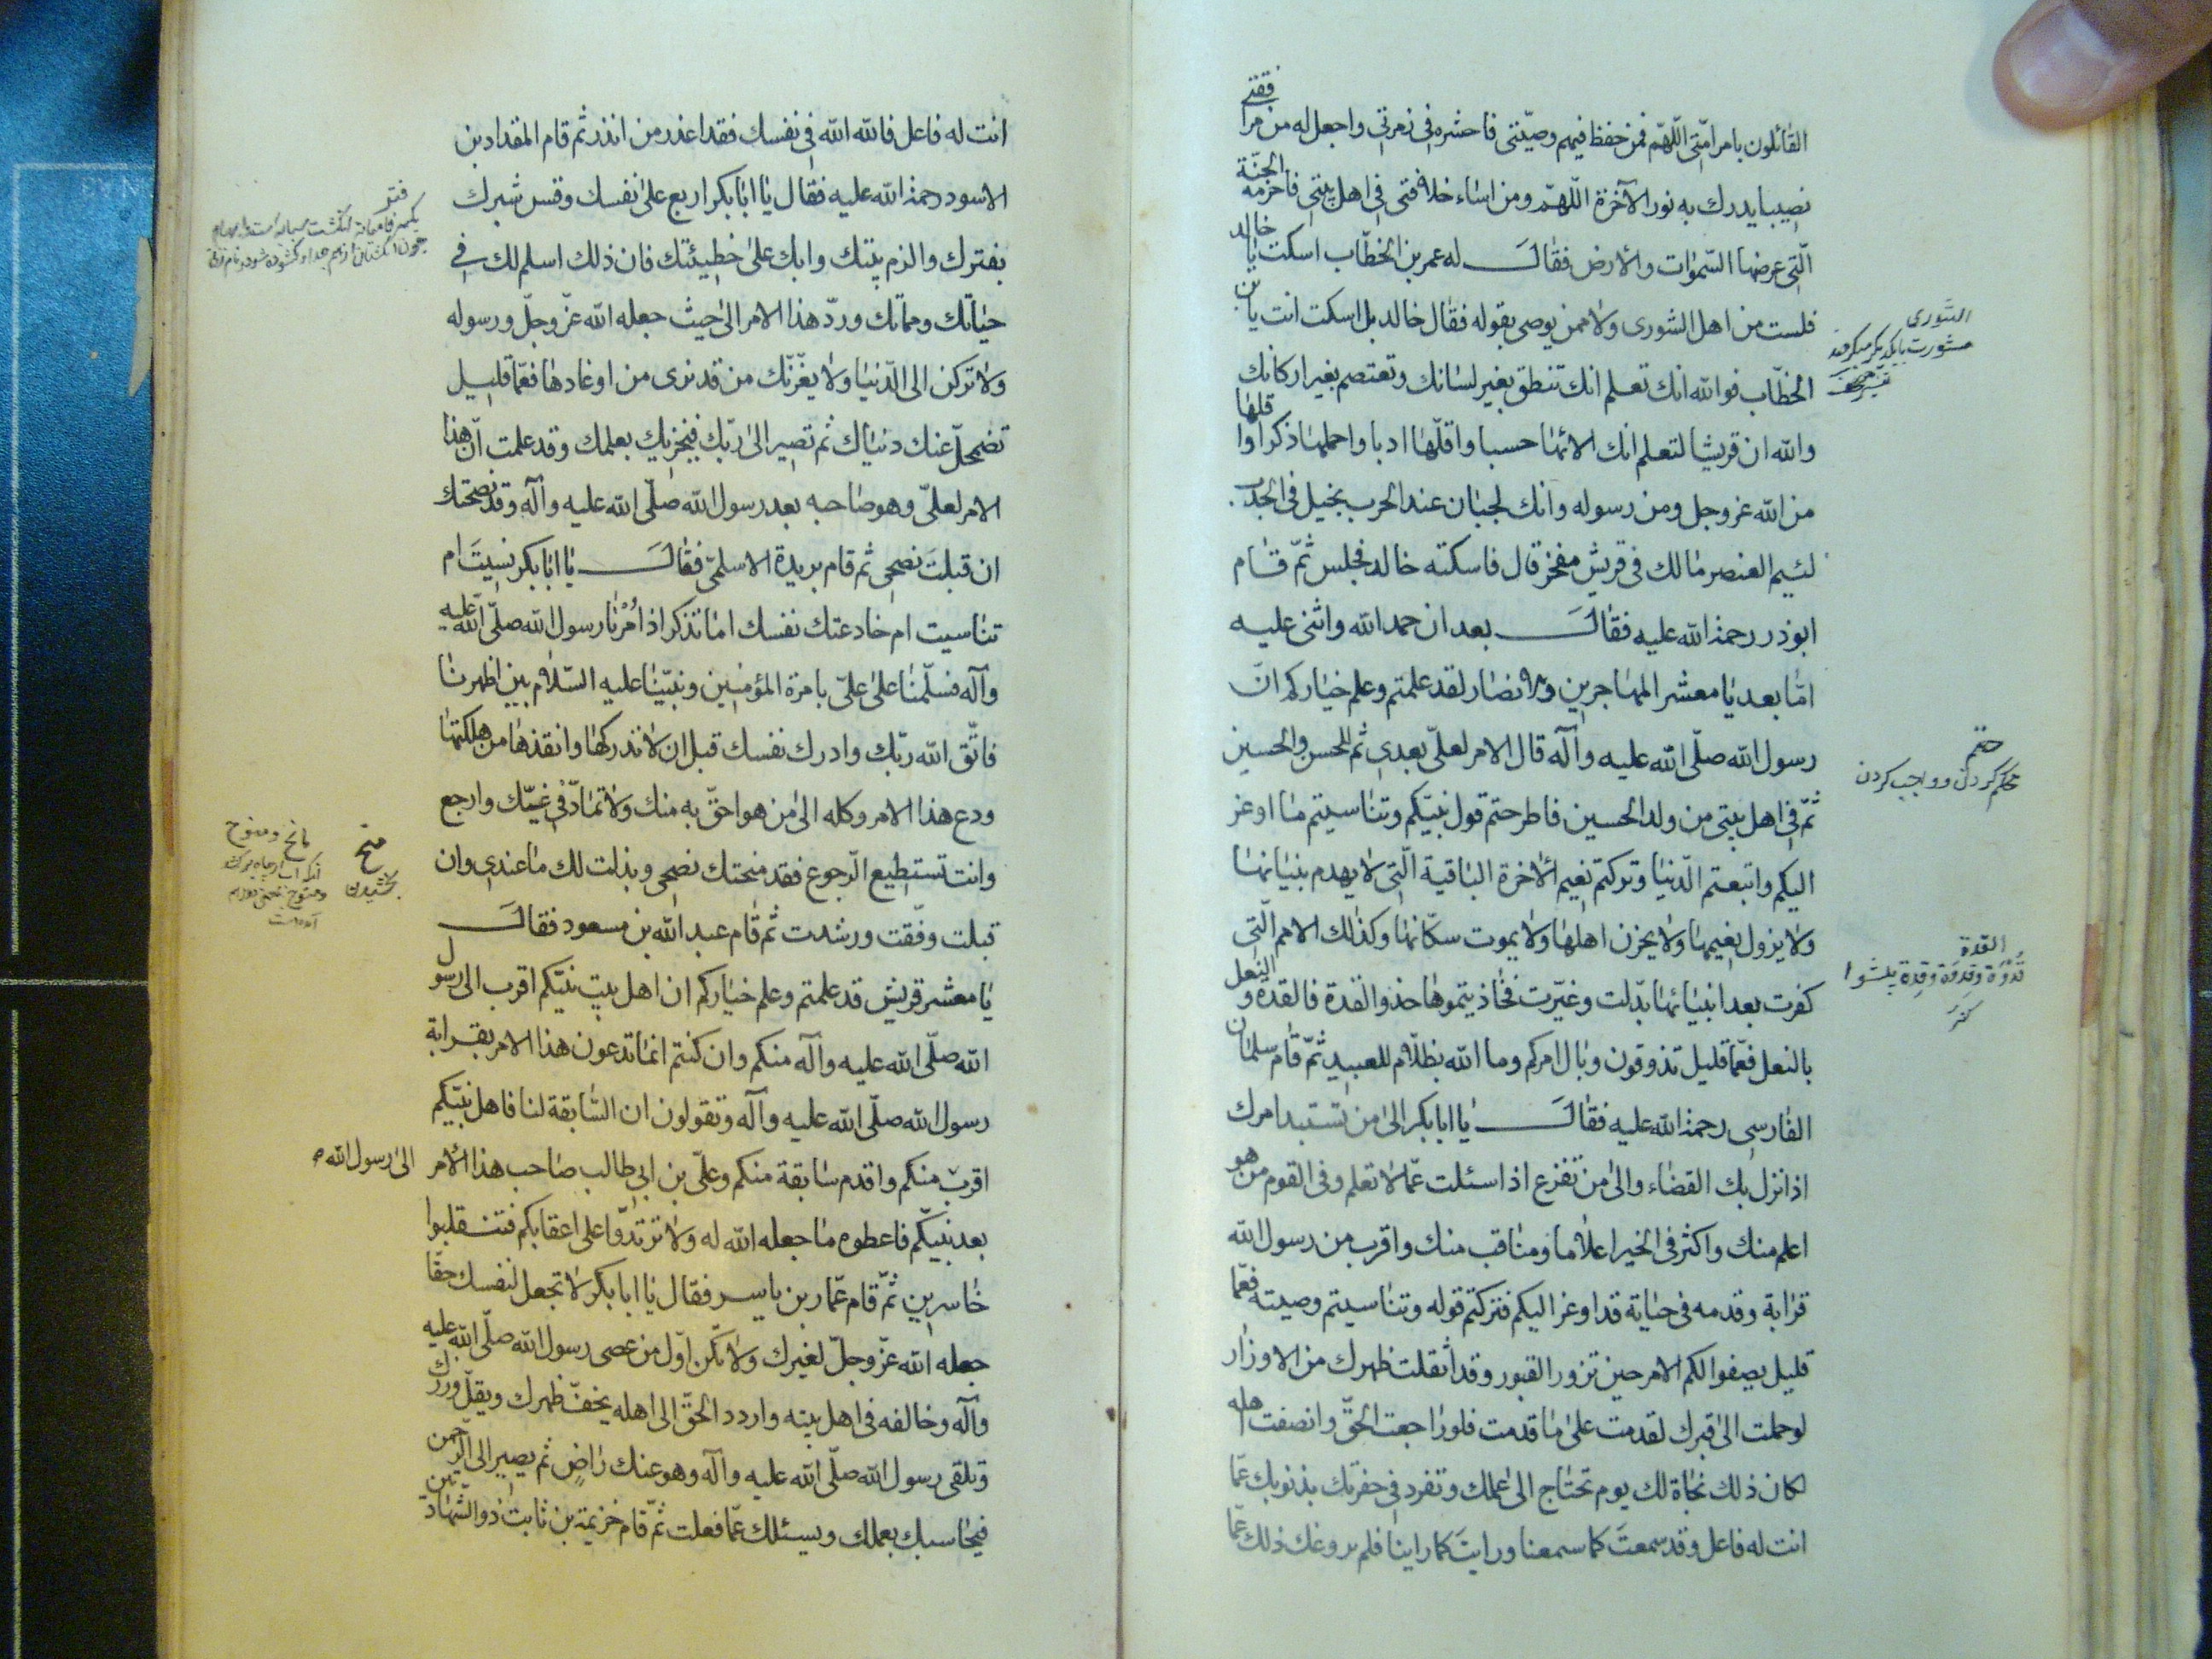 القائلون بامر امّتی اللّهمّ فمن حفظ فیهم وصیّتی فاحشره فی زمرتی واجعل له من مرافقتی
نصیبا یدرك به نور الآخرة اللّهمّ ومن اساء خلافتی فی اهل بیتی فاحرمه الجنّة
الّتی عرضها السّموات والارض فقال له عمر بن الخطّاب اسكت یا خالد
فلست من اهل الشوری ولا ممن یوصی بقوله فقال خالد بل اسكت انت یا بن
الخطّاب فوالله انك تعلم انك تنطق بغیر لسانك وتعتصم بغیر اركانك
والله ان قریشا لتعلم انك الائمها حسبا واقلّها ادبا واحملها ذكرا واقلها
من الله عز وجل ومن رسوله وانك لجبان عند الحرب بخیل فی الجدب
لئیم العنصر مالك فی قریش مفخر قال فاسكته خالد فجلس ثمّ قام
ابوذر رحمة الله علیه فقال بعد ان حمد الله واثنی علیه
امّا بعد یا معشر المهاجرین والانصار لقد علمتم وعلم خیاركم انّ
رسول الله صلّی الله علیه وآله قال الامر لعلیّ بعدی ثم للحسن والحسین
ثمّ فی اهل بیتی من ولد الحسین فاطرحتم قول نبیّكم وتناسیتم ما اوعز
الیكم واتبعتم الدّنیا وتركتم نعیم الاخرة الباقیة الّتی لا یهدم بنیانها
ولا یزول نعیمها ولا یحزن اهلها ولا یموت سكّانها وكذلك الامم الّتی
كفرت بعد انبیائها بدّلت وغیّرت فحاذیتموها حذو القذة فالقذة والنعل
بالنعل فعمّا قلیل تذوقون وبال امركم وما الله بظلّام للعبید ثمّ قام سلمان
الفارسی رحمة الله علیه فقال یا ابا بكر الی من تستبد امرك
اذا نزل بك القضاء والی من تفزع اذا سئلت عمّا لا تعلم وفی القوم من هو
اعلم منك واكثر فی الخیر اعلاما ومناقب منك واقرب من رسول الله
قرابة وقدمه فی حیاته قد اوعز الیكم فتركتم قوله وتناسیتم وصیته فعمّا
قلیل یصفوا لكم الامر حین تزور القبور وقد اثقلت ظهرك من الاوزار
لو حملت الی قبرك لقدمت علی ما قدمت فلو راجعت الحقّ وانصفت اهله
لكان ذلك نجاة لك یوم تحتاج الی عملك وتفرد فی حفرتك بذنوبك عمّا
انت له فاعل وقد سمعتَ كما سمعنا ورایتَ كما راینا فلم یروعك ذلك عمّا
الشوری
مشورت بایكدیگر میكردند
حتم
محكم كردن و واجب كردن
القذة
انت له فاعل فالله الله فی نفسك فقد اعذر من انذر ثم قام المقداد بن
الاسود رحمة الله علیه فقال یا ابا بكر اربع علی نفسك وقس شبرك
بفترك والزم بیتك وابك علی خطیئتك فان ذلك اسلم لك فی
حیاتك ومماتك وردّ هذا الامر الی حیث جعله الله عزّ وجلّ ورسوله
ولا تركن الی الدّنیا ولا یغرّنّك من قد تری من اوغادها فعمّا قلیل
تضمحلّ عنك دنیاك ثم تصیر الی ربّك فیجزیك بعملك وقد علمت انّ هذا
الامر لعلیّ وهو صاحبه بعد رسول الله صلّی الله علیه وآله وقد نصحتك
ان قبلتَ نصحی ثم قام بریدة الاسلمیّ فقال یا ابا بكر نسیتَ ام
تناسیت ام خادعتك نفسك اما تذكر اذ اُمرنا رسول الله صلّی الله علیه
وآله فسلّمنا علی علیّ بامرة المؤمنین ونبیّنا علیه السّلام بین اظهرنا
فاتّق الله ربّك وادرك نفسك قبل ان لا تدركها وانقذها من هلكتها
ودع هذا الامر وكله الی من هو احقّ به منك ولا تمادّ فی غیّك وارجع
وانت تستطیع الرّجوع فقد منحتك نصحی وبذلت لك ما عندی وان
قبلت وفّقت ورشدت ثم قام عبد الله بن مسعود فقال
یا معشر قریش قد علمتم وعلم خیاركم ان اهل بیت نبیّكم اقرب الی رسول
الله صلّی الله علیه وآله منكم وان كنتم انما تدعون هذا الامر بقرابة
رسول الله صلّی الله علیه وآله وتقولون ان السّابقة لنا فاهل نبیّكم
اقرب منكم واقدم سابقة منكم وعلیّ بن ابی طالب صاحب هذا الامر
بعد نبیّكم فاعطوه ما جعله الله له ولا ترتدّوا علی اعقابكم فتنقلبوا
خاسرین ثمّ قام عمّار بن یاسر فقال یا ابا بكر لا تجعل لنفسك حقّا
جعله الله عزّ وجلّ لغیرك ولا تكن اوّل من عصی رسول الله صلّی الله علیه
وآله وخالفه فی اهل بیته واردد الحقّ الی اهله یخفّ ظهرك ویقلّ وزرك
وتلقی رسول الله صلّی الله علیه وآله وهو عنك راضٍ ثم یصیر الی الرّحمن
فیحاسبك بعملك ویسئلك عمّا فعلت ثمّ قام خزیمة بن ثابت ذو الشّهادتین
فتر
منح
بخشیدن
الی رسول الله